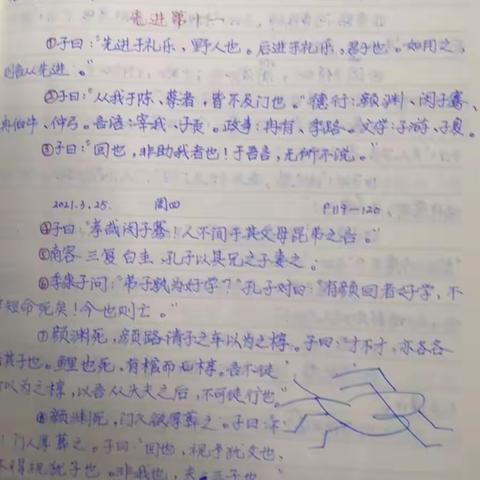 先进第十一
①子曰："先进于礼乐，野人也。后进于礼乐，君子也。如用之，
则吾从先进。"
②子曰："从我于陈、蔡者，皆不及门也。"德行：颜渊、闵子骞、
冉伯牛、仲弓。言语：宰我、子贡。政事：冉有、季路。文学：子游、子夏。
③子曰："回也，非助我者也！于吾言，无所不说。"
2021.3.25. 周四 P119—120.
④子曰："孝哉闵子骞！人不间于其父母昆弟之言。"
⑤南容三复白圭，孔子以其兄之子妻之。
⑥季康子问："弟子孰为好学？"孔子对曰："有颜回者好学，不
短命死矣！今也则亡。"
⑦颜渊死，颜路请子之车以为之椁。子曰："才不才，亦各言
其子也。鲤也死，有棺而无椁。吾不徒
以为之椁，以吾从大夫之后，不可徒行也。"
⑧颜渊死，门人欲厚葬之。子曰：
门人厚葬之。子曰："回也，视予犹父也，
不得视犹子也。非我也，夫二三子也。